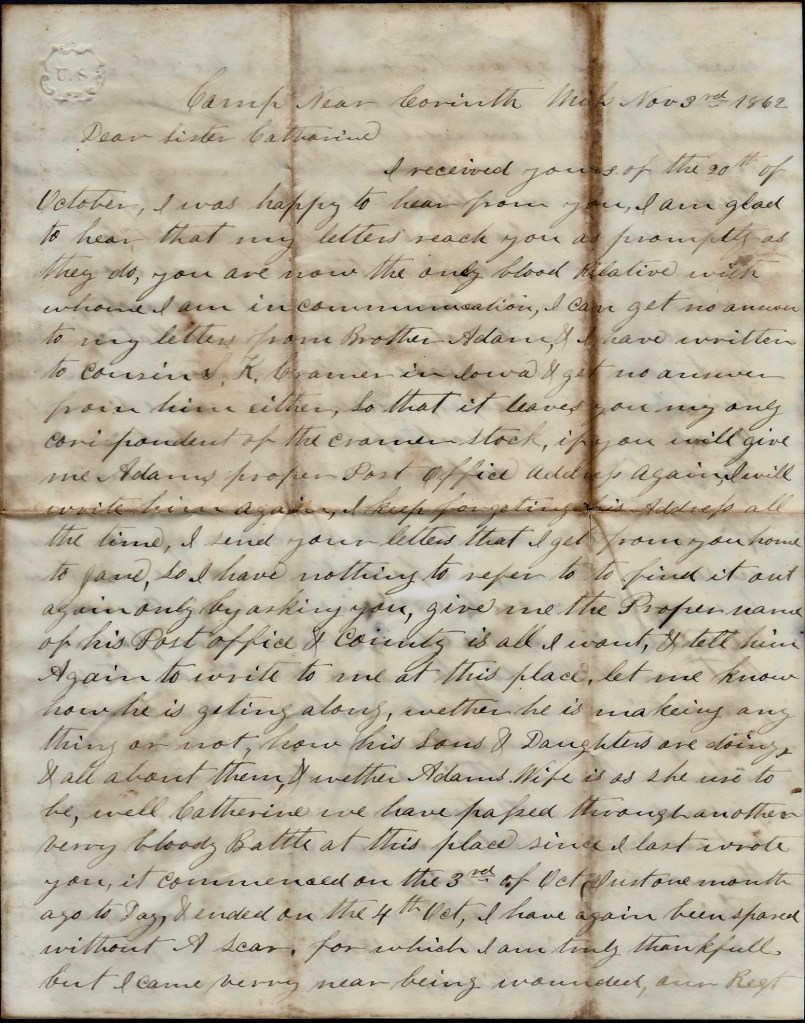 U.S.
Camp Near Corinth Miss Nov 3rd 1862
Dear Sister Catharine
I received yours of the 20th of
October, I was happy to hear from you, I am glad
to hear that my letters reach you as promptly as
they do, you are now the only blood Relative with
whome I am in communication, I can get no answer
to my letters from Brother Adam, & I have written
to cousin S. K. Cramer in Iowa & get no answer
from him either, So that it leaves you my only
corispondent of the cramer stock, if you will give
me Adams proper Post Office address again, I will
write him again, I keep forgeting his Address all
the time, I send your letters that I get from you home
to Jane, So I have nothing to refer to to find it out
again only by asking you, give me the Proper name
of his Post office & County is all I want, & tell him
Again to write to me at this place, let me know
how he is geting along, wether he is makeing any
thing or not, how his Sons & Daughters are doing,
& all about them, & wether Adams Wife is as she use to
be, well Catherine we have passed through another
verry bloody Battle at this place since I last wrote
you, it commenced on the 3rd of Oct Just one month
ago to Day, & ended on the 4th Oct, I have again been spared
without A scar, for which I am truly thankfull
but I came verry near being wounded, our Regt